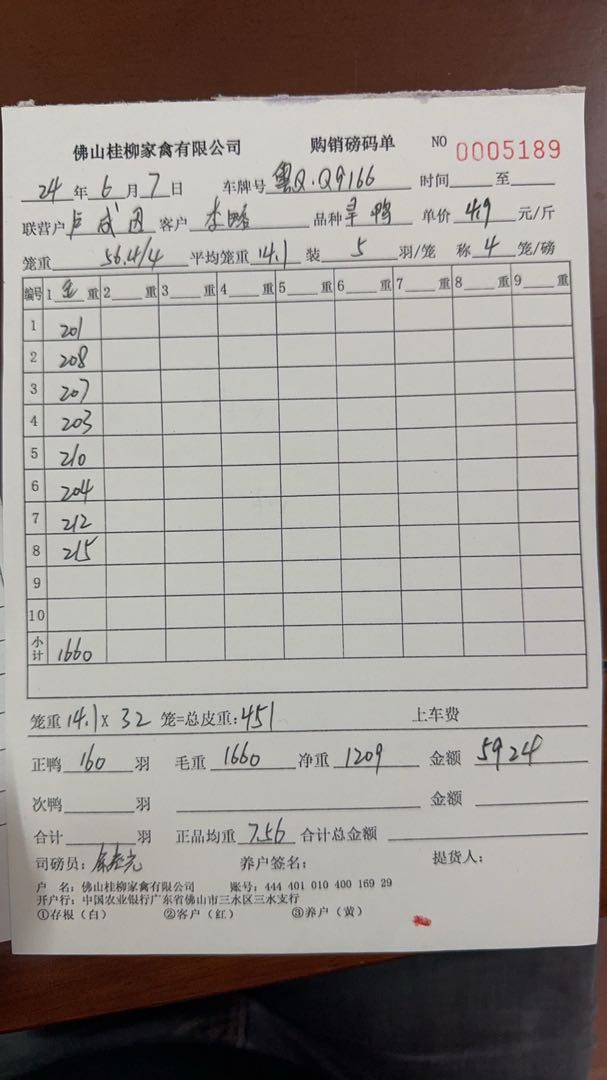 佛山桂柳家禽有限公司 购销磅码单 NO 0005189
24年6月7日 车牌号 粤Q·Q9166 时间 至
联营户 卢成 客户 李 品种 旱鸭 单价 4.9 元/斤
笼重 56.4/4 平均笼重 14.1 装 5 羽/笼 称 4 笼/磅
编号 1 重 2 重 3 重 4 重 5 重 6 重 7 重 8 重 9 重
1 201
2 208
3 207
4 203
5 210
6 204
7 212
8 215
9
10
小计 1660
笼重 14.1 × 32 笼=总皮重: 451 上车费
正鸭 160 羽 毛重 1660 净重 1209 金额 5924
次鸭 羽 金额
合计 羽 正品均重 7.56 合计总金额
司磅员: 养户签名: 提货人:
户 名: 佛山桂柳家禽有限公司 账号: 444 401 010 400 169 29
开户行: 中国农业银行广东省佛山市三水区三水支行
①存根（白） ②客户（红） ③养户（黄）